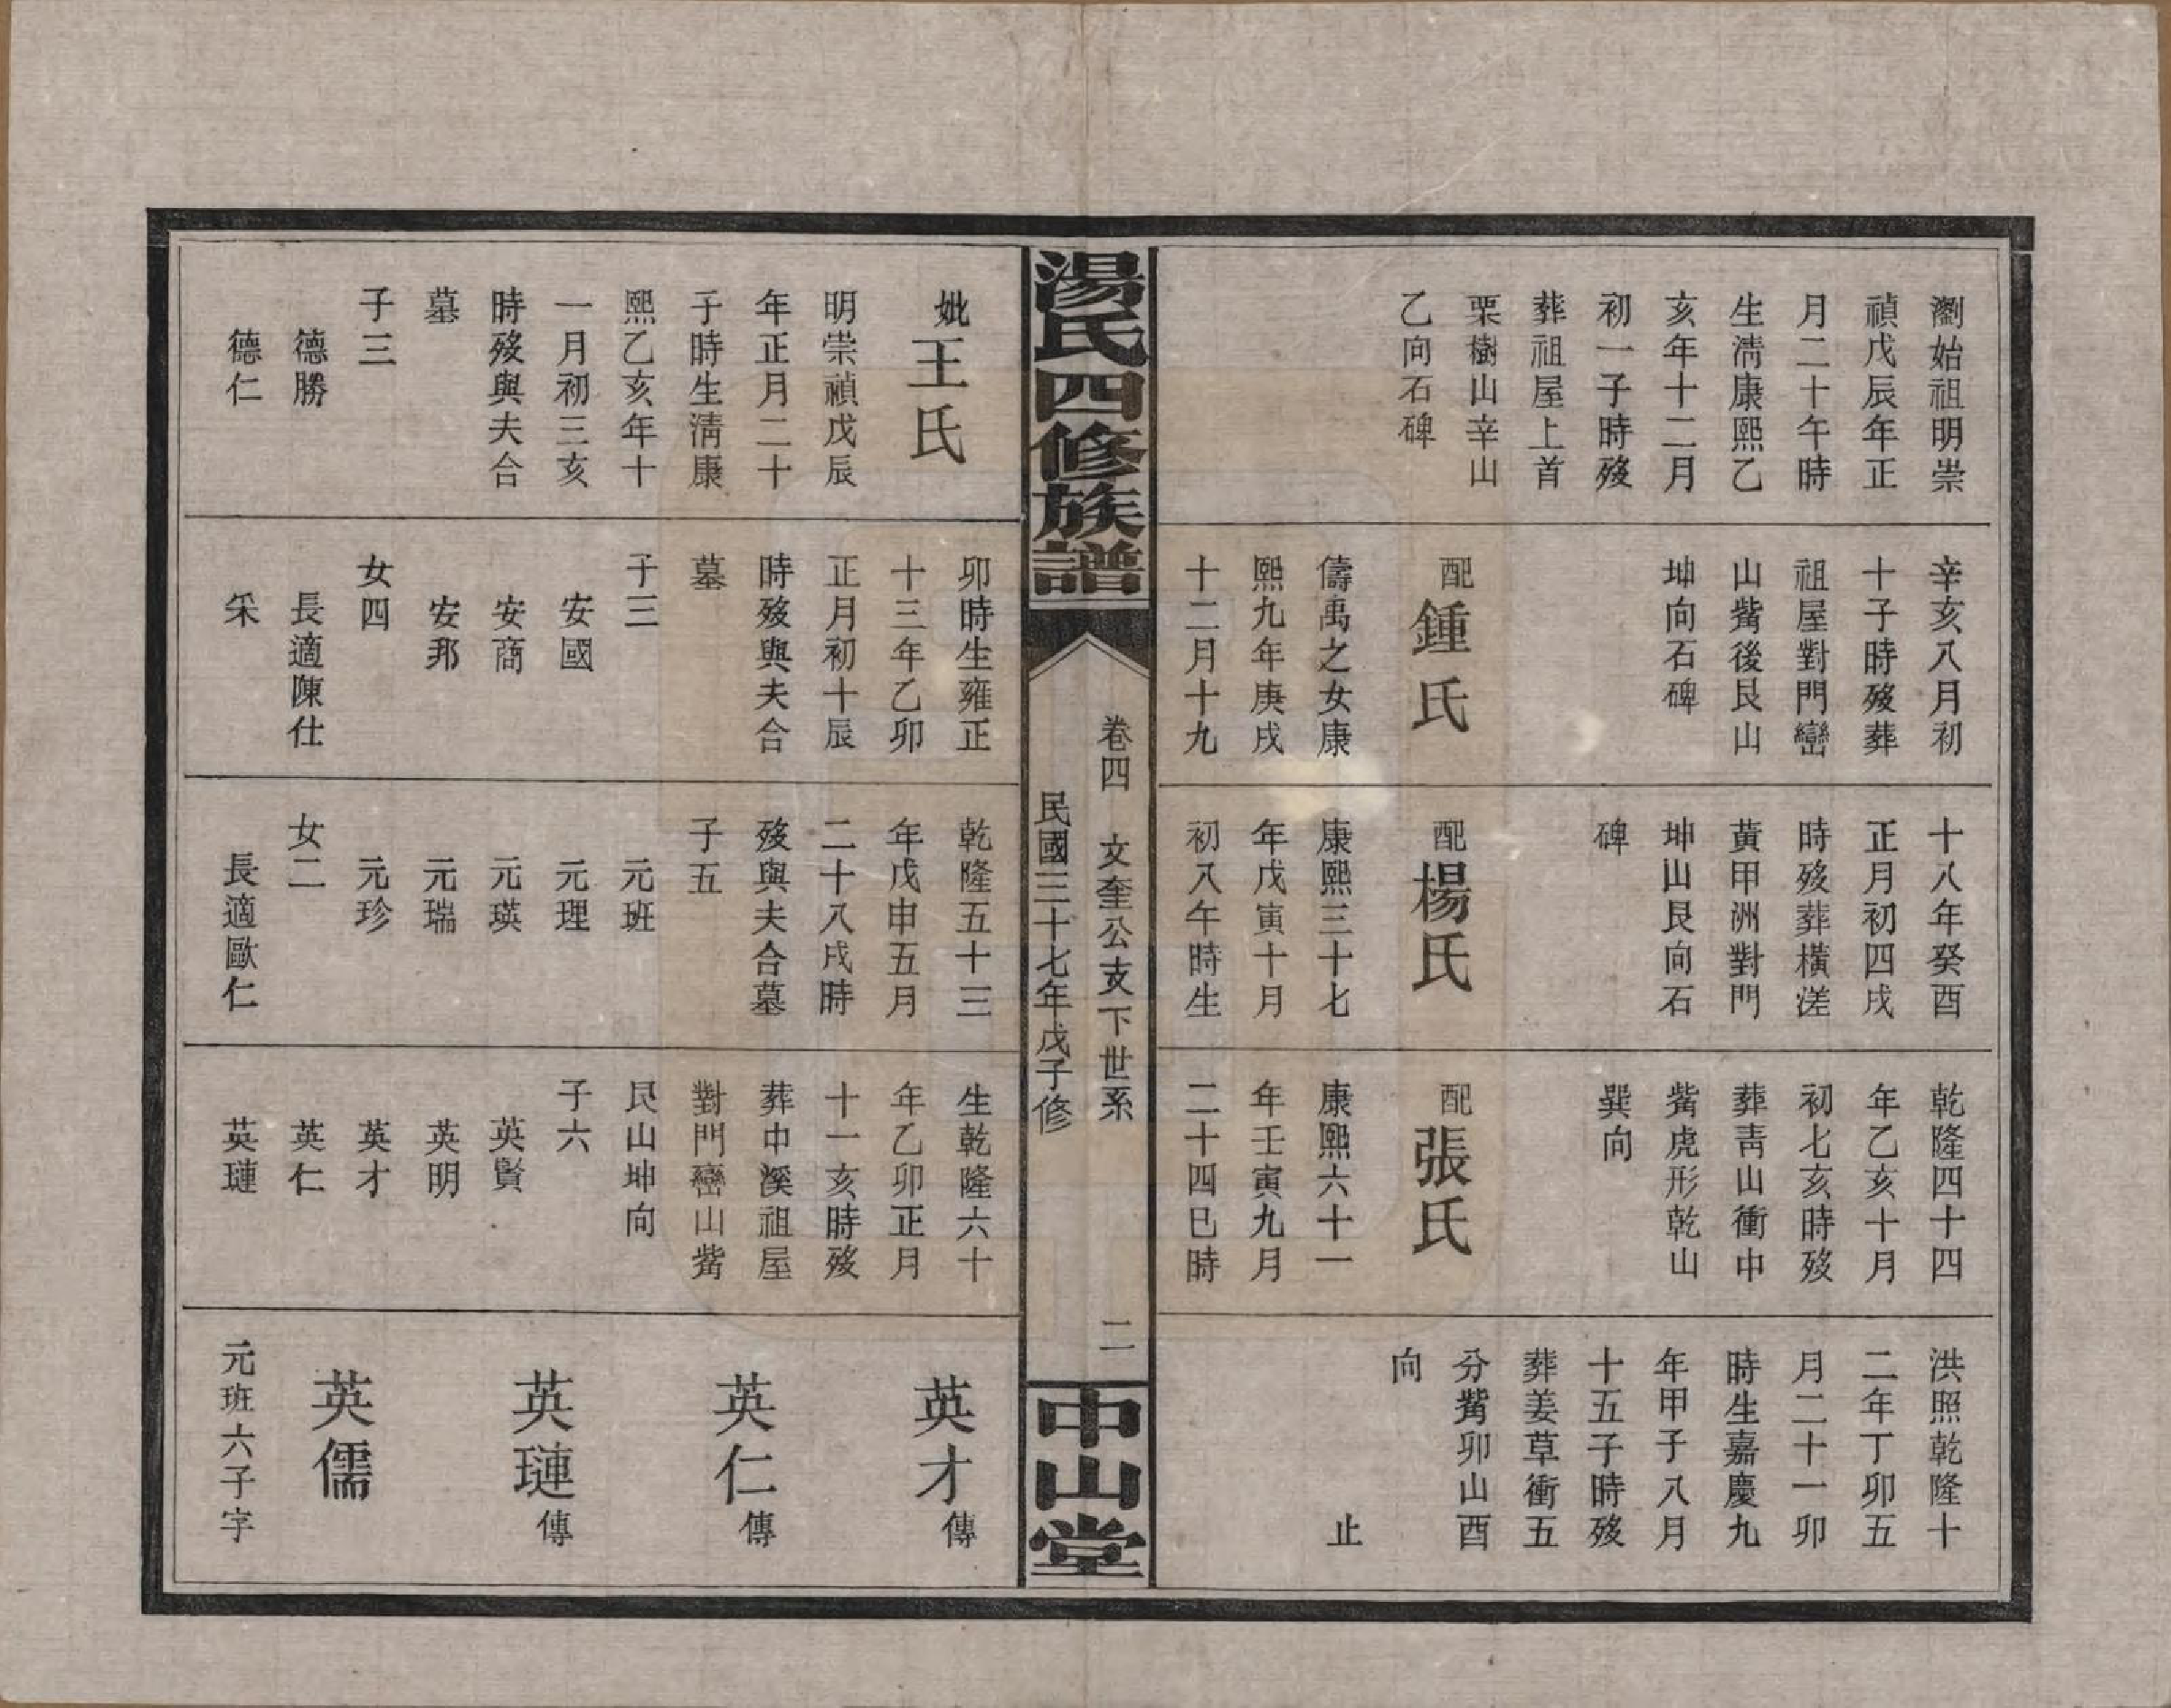 瀏始祖明崇
禎戊辰年正
月二十午時
生淸康熙乙
亥年十二月
初一子時歿
葬祖屋上首
栗樹山辛山
乙向石碑
辛亥八月初
十子時歿葬
祖屋對門巒
山觜後艮山
坤向石碑
配鍾氏
儔禹之女康
熙九年庚戌
十二月十九
十八年癸酉
正月初四戌
時歿葬橫溠
黃甲洲對門
坤山艮向石
碑
配楊氏
康熙三十七
年戊寅十月
初八午時生
乾隆四十四
年乙亥十月
初七亥時歿
葬靑山衝中
觜虎形乾山
巽向
配張氏
康熙六十一
年壬寅九月
二十四巳時
洪照乾隆十
二年丁卯五
月二十一卯
時生嘉慶九
年甲子八月
十五子時歿
葬姜草衝五
分觜卯山酉
向
止
湯氏四修族譜
卷四 文奎公支下世系 二
民國三十七年戊子修
中山堂
妣王氏
明崇禎戊辰
年正月二十
子時生淸康
熙乙亥年十
一月初三亥
時歿與夫合
墓
子三
德勝
德仁
卯時生雍正
十三年乙卯
正月初十辰
時歿與夫合
墓
子三
安國
安商
安邦
女四
長適陳仕
釆
乾隆五十三
年戊申五月
二十八戌時
歿與夫合墓
子五
元班
元理
元瑛
元瑞
元珍
女二
長適歐仁
生乾隆六十
年乙卯正月
十一亥時歿
葬中溪祖屋
對門巒山觜
艮山坤向
子六
英賢
英明
英才
英仁
英璉
英才傳
英仁傳
英璉傳
英儒
元班六子字